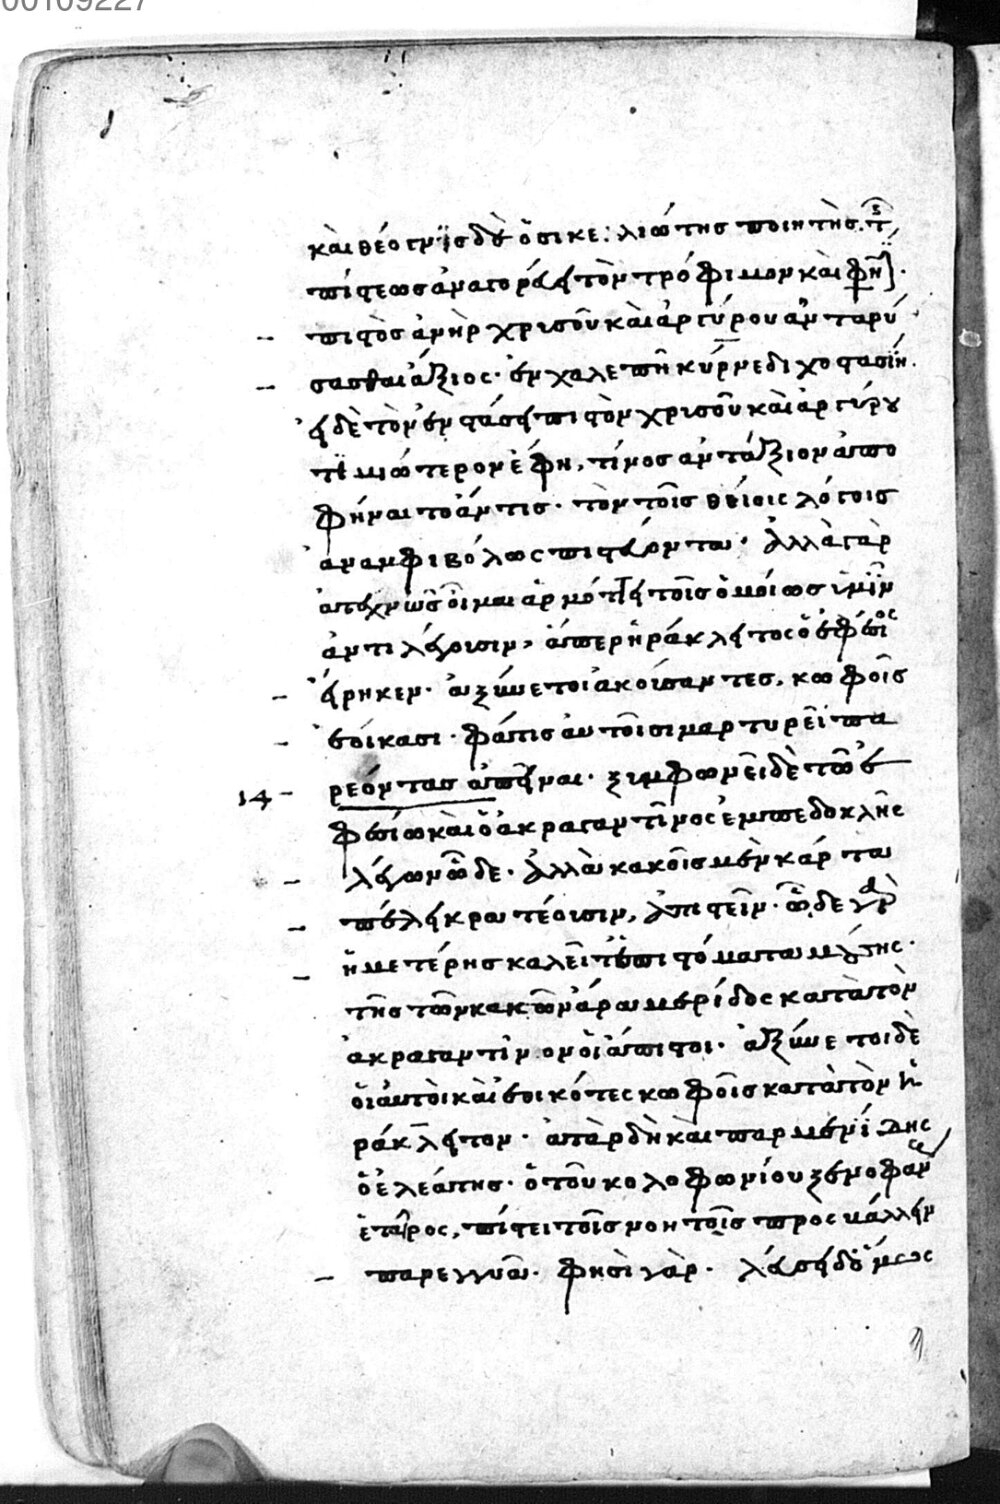 00109227
καὶ θέογνις δὲ ὁ σικελιώτης ποιητὴς. τ
πίστεως ἀναγορεύει τὸν τρόφιμον καὶ φη.
πιστὸς ἀνὴρ χρυσοῦ καὶ ἀργύρου ἀνταρύ
σασθαι ἄξιος. ἐν χαλεπῆ κύρνε διχοστασίη.
εἰ δὲ τὸν ἐν στάσει πιστὸν χρυσοῦ καὶ ἀργύρου
τιμιώτερον ἔφη, τίνος ἀντάξιον ἀπο
φήναιτο ἄν τις. τὸν τοῖς θείοις λόγοις
ἀναμφιβόλως πιστεύοντα. ἀλλὰ γὰρ
ἀτεχνῶς οἶμαι ἁρμόττει τοῖς ὁμοίως ὑμῖν
ἀντιλέγουσιν, ἅπερ ἡράκλειτος ὁ ἐφέσιος
εἴρηκεν. ἀξύνετοι ἀκούσαντες, κωφοῖς
ἐοίκασι. φάτις αὐτοῖσι μαρτυρεῖ πα
14 ρεόντας ἀπεῖναι. ξυμφωνεῖ δὲ τῶ ἐ
φεσίω καὶ ὁ ἀκραγαντῖνος ἐμπεδοκλῆς
λέγων ὧδε. ἀλλὰ κακοῖς μὲν κάρτα
πέλει κρατέουσιν, ἀπιστεῖν. ὧδε γὰρ
ἡμετέρης καλεῖται πιστόματα μούσης.
τῆς τῶν κακῶν ἄρα μερίδος κατὰ τὸν
ἀκραγαντῖνον οἱ ἄπιστοι. ἀξύνετοι δὲ
οἱ αὐτοὶ καὶ ἐοικότες κωφοῖς κατὰ τὸν ἡ
ράκλειτον. ἀτὰρ δὴ καὶ παρμενίδης
ὁ ἐλεάτης. ὁ τοῦ κολοφωνίου ξενοφάν
ἑταῖρος, πίστει τοῖς νοητοῖς προσβάλλειν
παρεγγυᾶ. φησὶ γὰρ. λεύσει δ' ὅμως